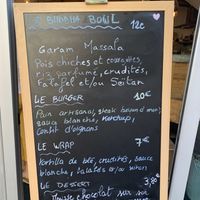 BUDDHA BOWL
12€
Garam Massala
Pois chiches et courgettes,
riz parfumé, crudités,
Falafel et/ou Seitan
LE BURGER 10€
Pain artisanal, steak
sauce blanche, Ketchup,
confit d'oignons
LE WRAP 7€
tortilla de blé, crudités, sauce
blanche, falafel et/ou seitan
LE DESSERT 3,80€
chocolat sur